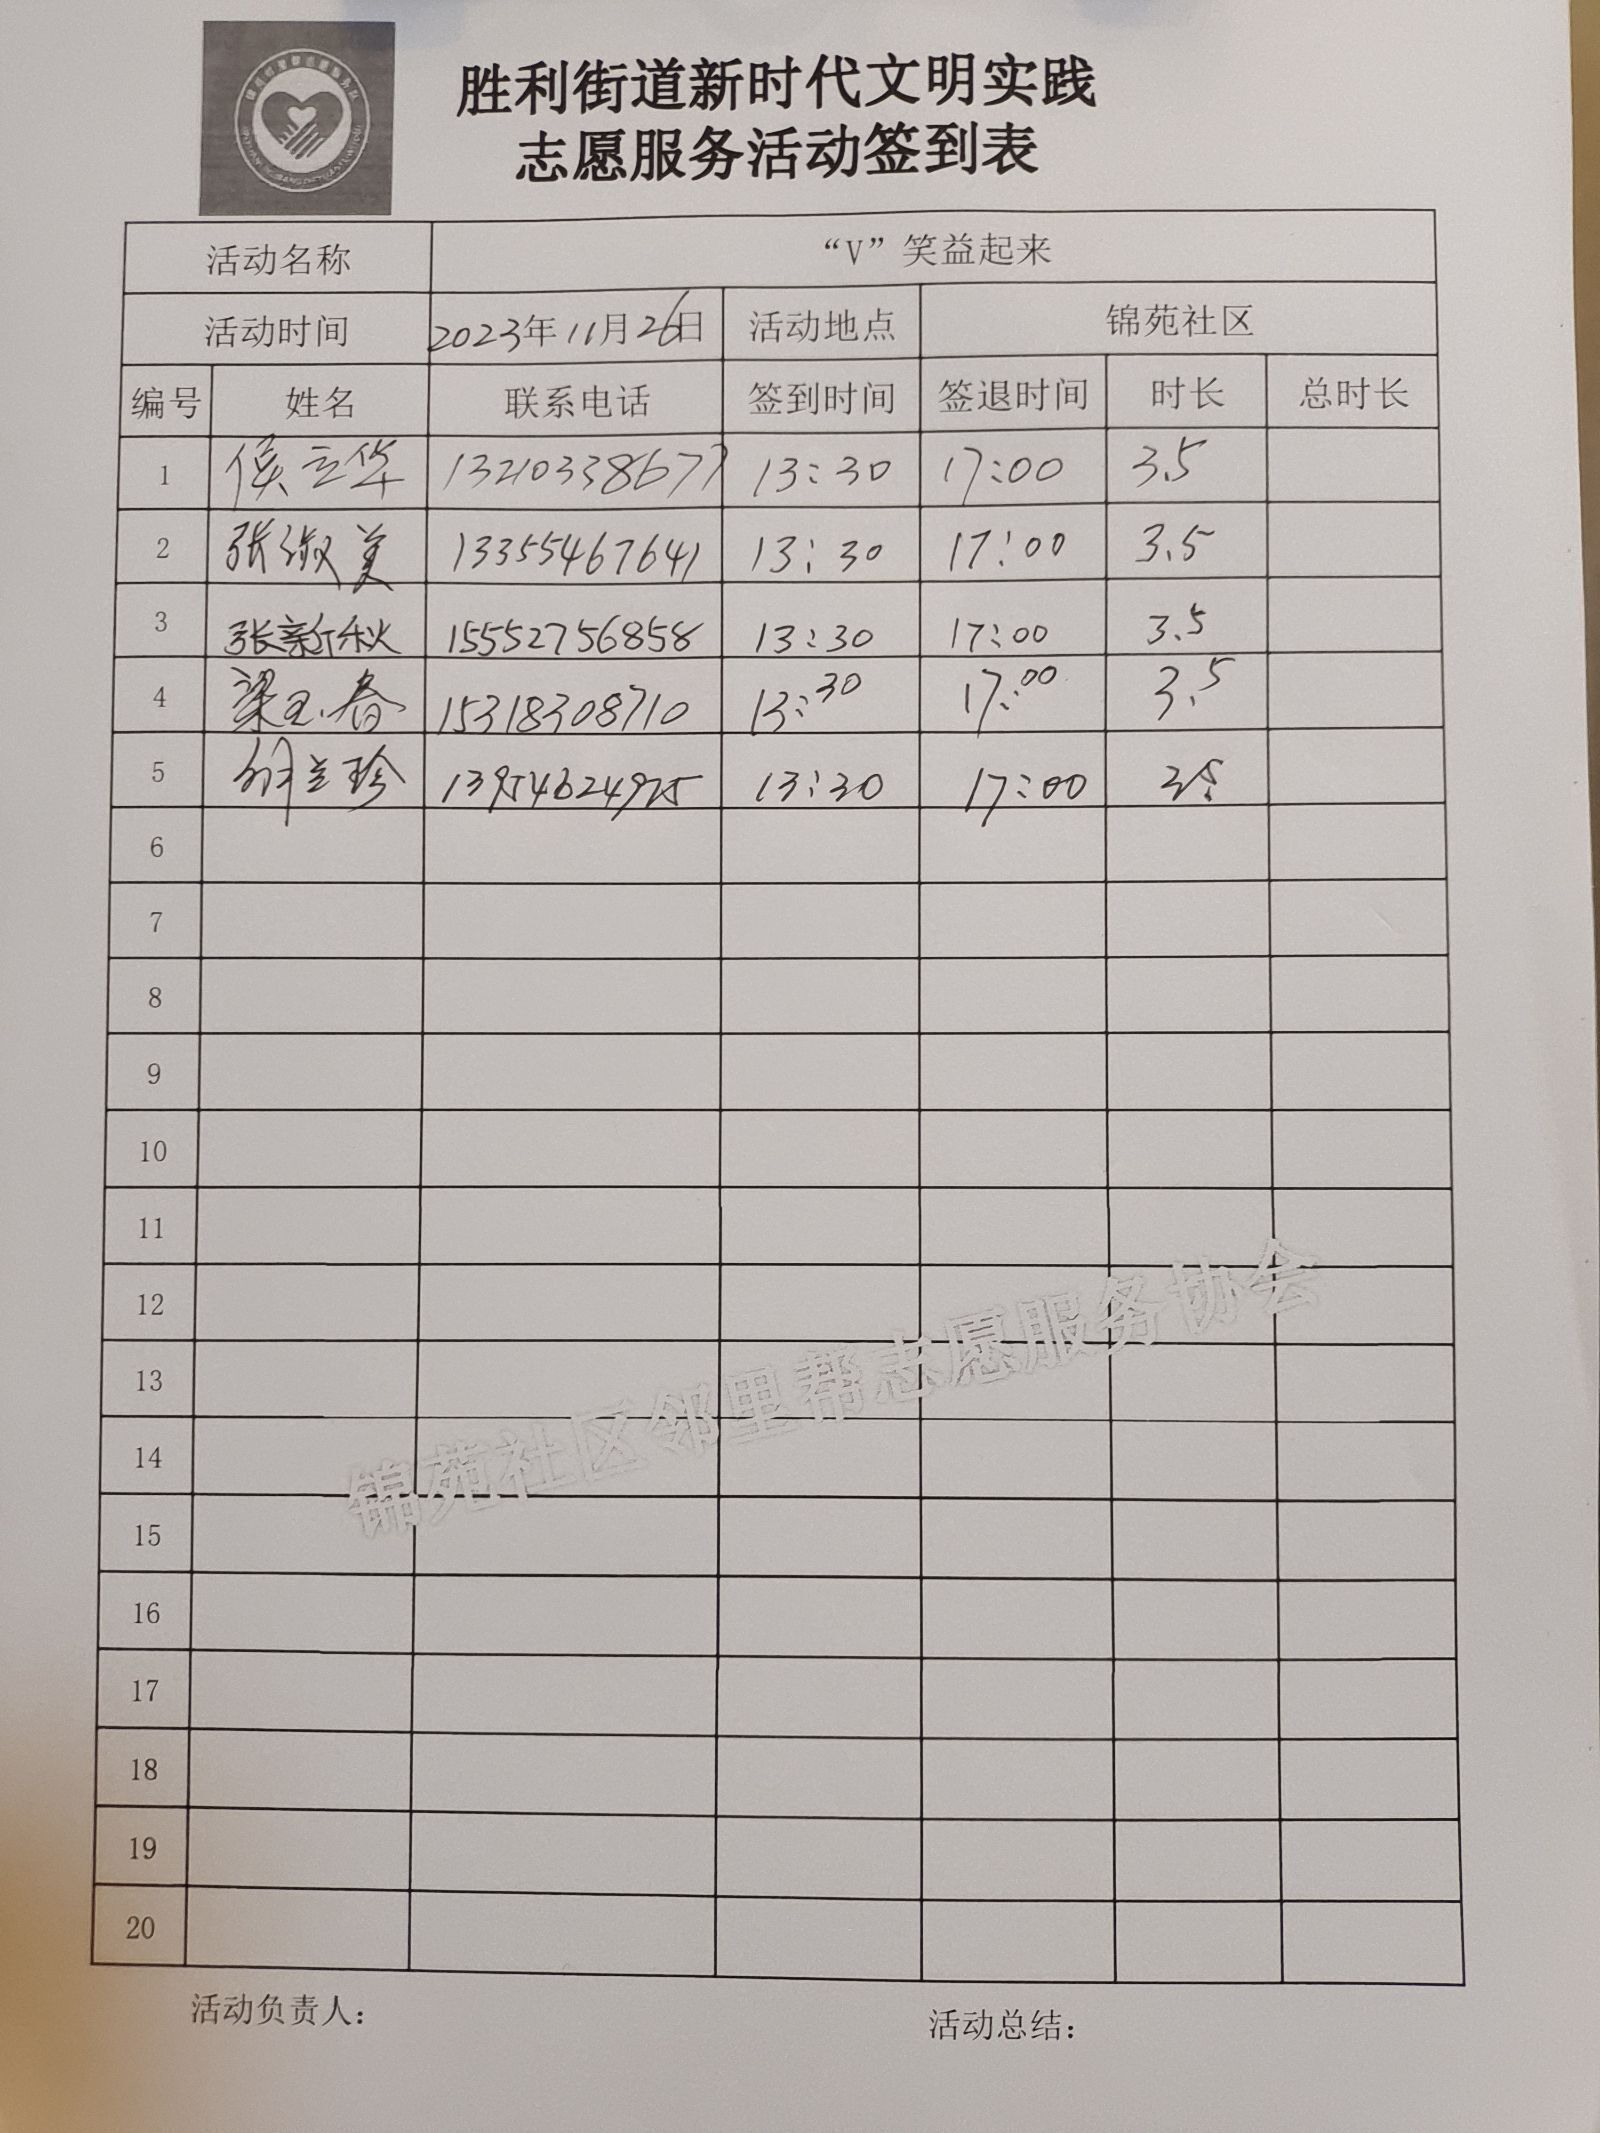 胜利街道新时代文明实践
志愿服务活动签到表
活动名称 “V”笑益起来
活动时间 2023年11月26日 活动地点 锦苑社区
编号 姓名 联系电话 签到时间 签退时间 时长 总时长
1 侯立华 13210338677 13:30 17:00 3.5
2 张淑美 13355467641 13:30 17:00 3.5
3 张新秋 15552756858 13:30 17:00 3.5
4 梁玉春 15318308710 13:30 17:00 3.5
5 兰珍 13954624925 13:30 17:00
6
7
8
9
10
11
12
13
14
15
16
17
18
19
20
锦苑社区邻里帮志愿服务协会
活动负责人： 活动总结：